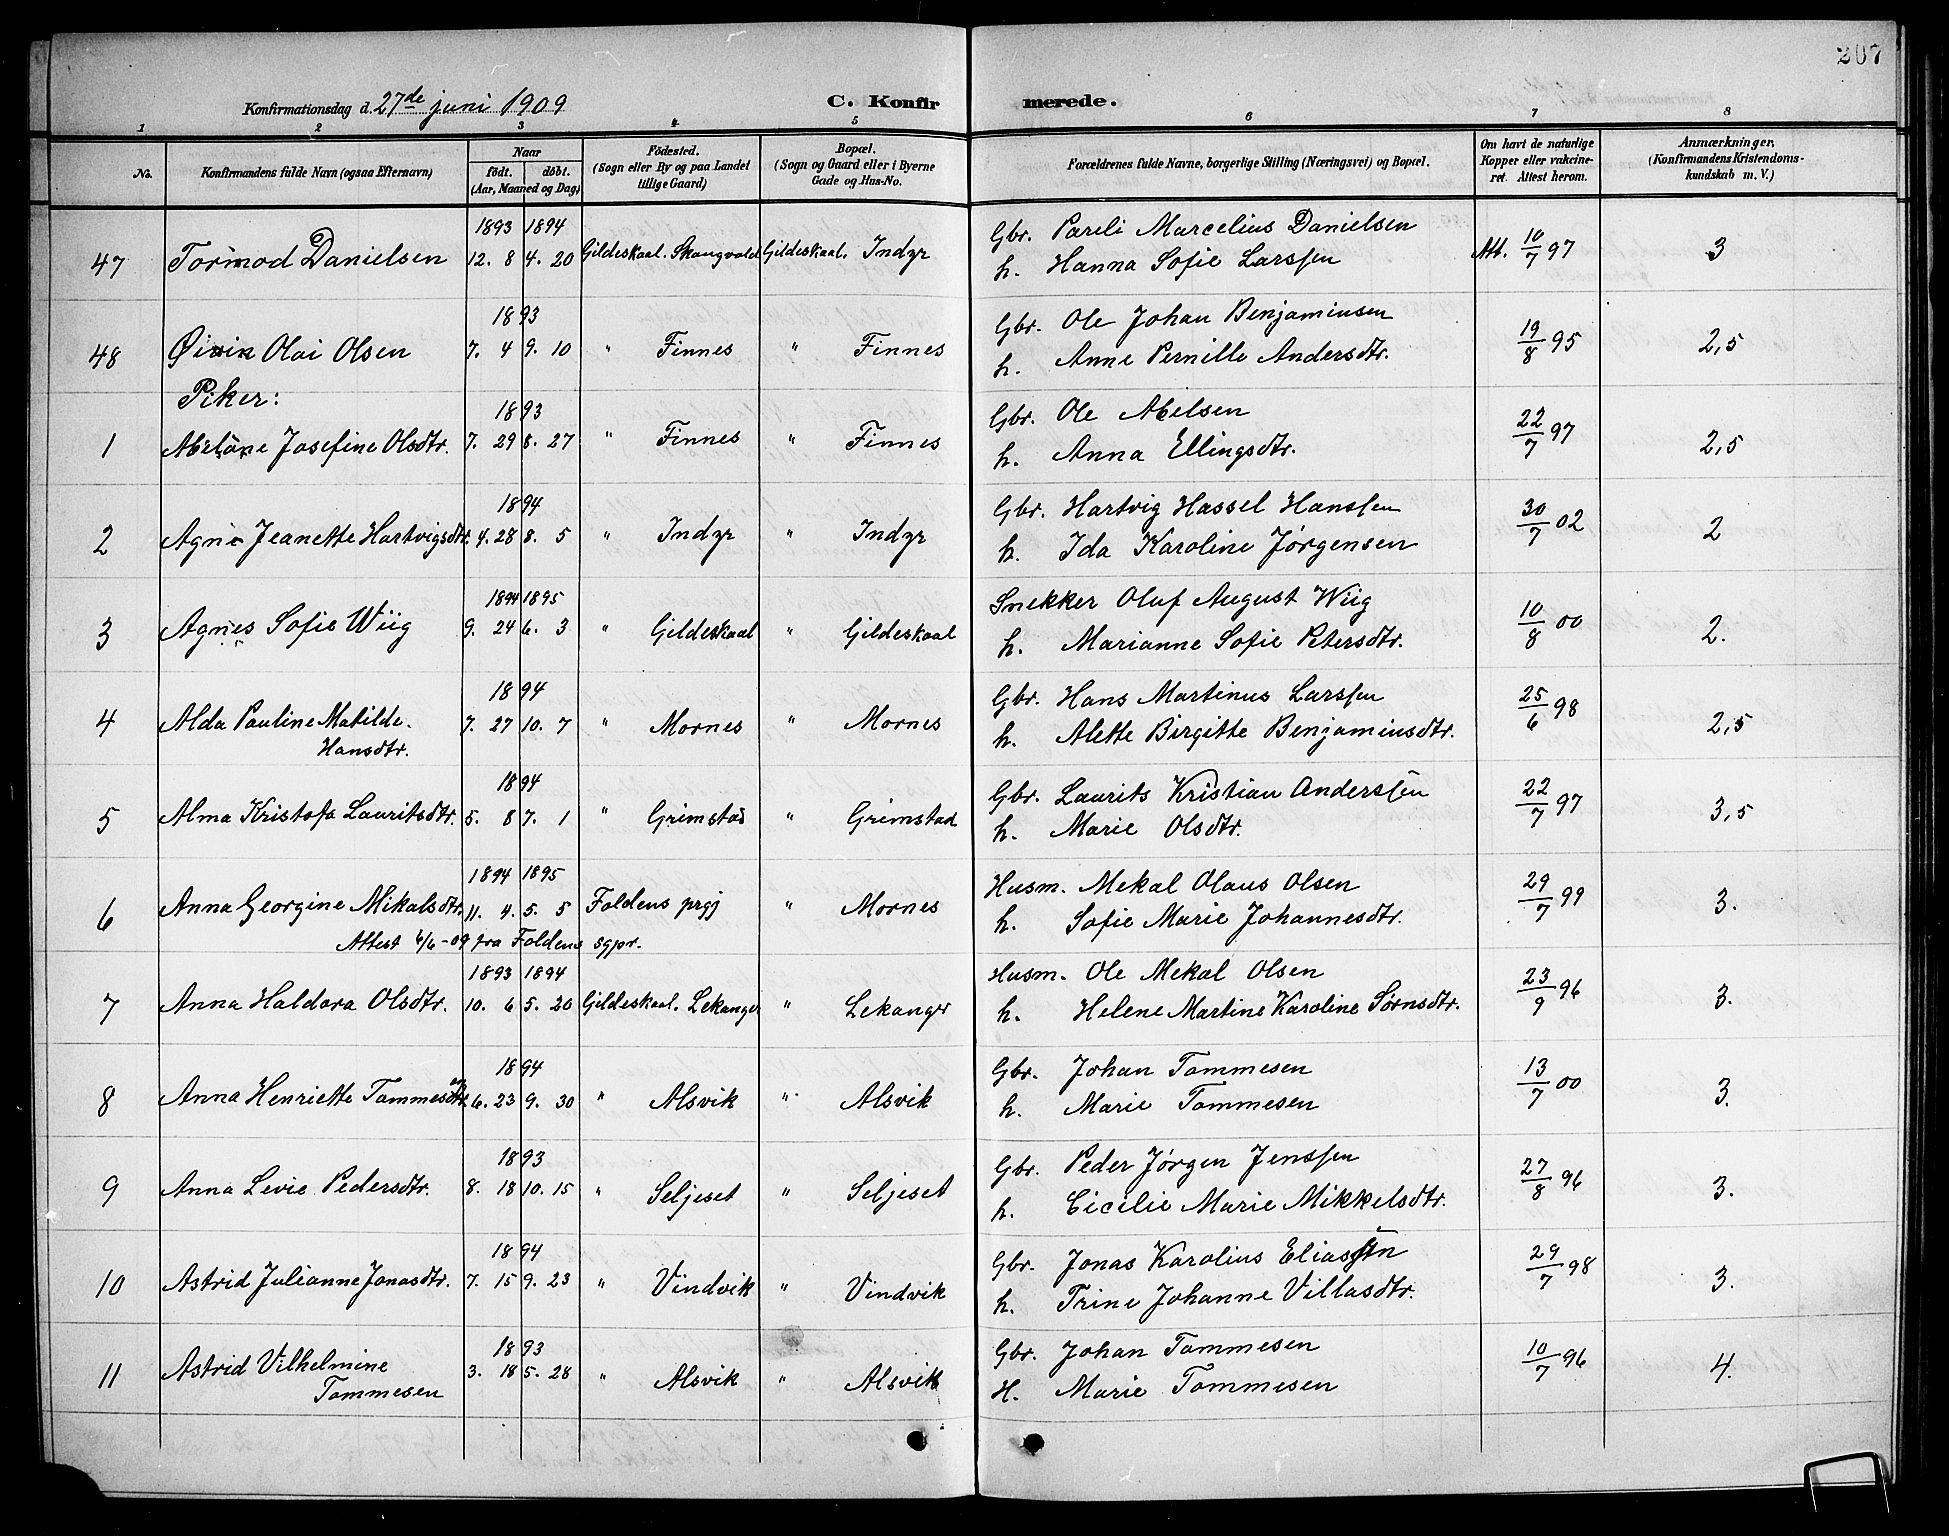 207
Konfirmationsdag d. 27de juni 1909 C. Konfirmerede.
1 2 3 4 5 6 7 8
No. Konfirmandens fulde Navn (ogsaa Efternavn) Naar født. døbt. (Aar, Maaned og Dag) Fødested. (Sogn eller By og paa Landet tillige Gaard) Bopæl. (Sogn og Gaard eller i Byerne Gade og Hus-No. Forældrenes fulde Navne, borgerlige Stilling (Næringsvei) og Bopæl. Om havt de naturlige Kopper eller vakcineret. Attest herom. Anmærkninger. (Konfirmandens Kristendomskundskab m. V.)
1893 1894 Gbr. Pareli Marcelius Danielsen
47 Tormod Danielsen 12. 8 4. 20 Gildeskaal. Skaugvold Gildeskaal. Indyr h. Hanna Sofie Larssen Att. 10/7 97 3
1893 Gbr. Ole Johan Benjaminsen
48 Olai Olsen 7. 4 9. 10 " Finnes " Finnes h. Anne Pernille Andersdtr. 19/8 95 2,5
Piker:
1893 Gbr. Ole Abelsen
1 Josefine Olsdtr. 7. 29 8. 27 " Finnes " Finnes h. Anna Ellingsdtr. 22/7 97 2,5
1894 Gbr. Hartvig Hassel Hanssen
2 Agne Jeanette Hartvigsdtr. 4. 28 8. 5 " Indyr " Indyr h. Ida Karoline Jørgensen 30/7 02 2
1894 1895 Snekker Oluf August Wiig
3 Agnes Sofie Wiig 9. 24 6. 3 " Gildeskaal " Gildeskaal h. Marianne Sofie Petersdtr. 10/8 00 2.
1894 Gbr. Hans Martinus Larssen
4 Alda Pauline Matilde. 7. 27 10. 7 " Mornes " Mornes h. Alette Birgitte Benjaminsdtr. 25/6 98 2,5
Hansdtr.
1894 Gbr. Laurits Kristian Anderssen
5 Alma Kristofa Lauritsdtr. 5. 8 7. 1 " Grimstad " Grimstad h. Marie Olsdtr. 22/7 97 3,5
1894 1895 Husm. Mekal Olaus Olsen
6 Anna Georgine Mikalsdtr. 11. 4. 5. 5 Foldens prgj " Mornes h. Sofie Marie Johannesdtr. 29/7 99 3.
Attest 6/6-09 fra Foldens sgpr.
1893 1894 Husm. Ole Mekal Olsen
7 Anna Haldora Olsdtr. 10. 6 5. 20 Gildeskaal. Lekanger " Lekanger h. Helene Martine Karoline Sørnsdtr. 23/9 96 3.
1894 Gbr. Johan Tommesen
8 Anna Henriette 6. 23 9. 30 " Alsvik " Alsvik h. Marie Tommesen 13/7 00 3.
1893 Gbr. Peder Jørgen Jenssen
9 Anna Levie Pedersdtr. 8. 18 10. 15 " Seljeset " Seljeset h. Cicilie Marie Mikkelsdtr. 27/8 96 3.
1894 Gbr. Jonas Karolius Eliassen
10 Astrid Julianne Jonasdtr. 7. 15 9. 23 " Vindvik " Vindvik h. Trine Johanne Villasdtr. 29/7 98 3.
1893 Gbr. Johan Tommesen
11 Astrid Vilhelmine 3. 18 5. 28 " Alsvik " Alsvik H. Marie Tommesen 10/7 96 4.
Tommesen